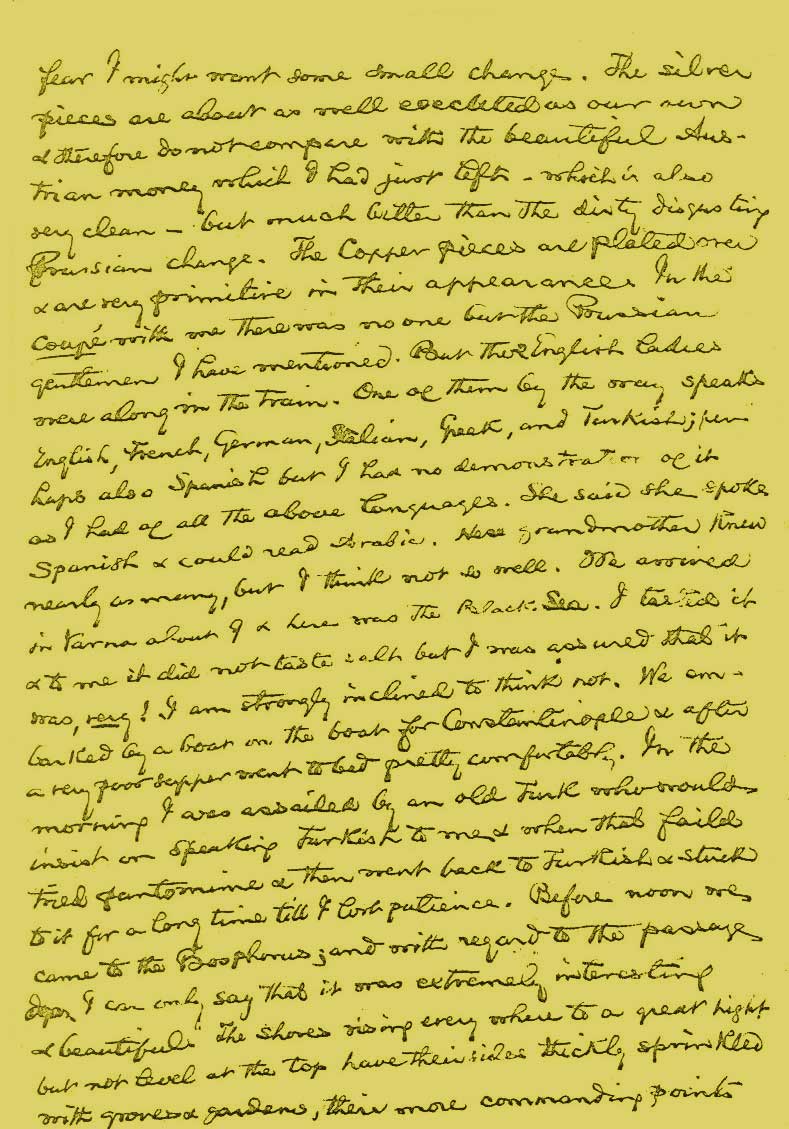 fear I might want some small change. The silver
pieces are about as well executed as our own
& therefore do not compare with the beautiful Aus-
trian money which I had just left - which is also
very clean - but much better than the dirty disgusting
Prussian change. The Copper pieces are plated over
& are very primitive in their appearance. In the
coupé with me there was no one but the Prussian
gentlemen I have mentioned. But the 2 English Ladies
were along in the train. One of them by the way speaks
English, French, German, Italian, Greek, and Turkish; per
haps also Spanish but I had no demonstration of it
as I had of all the above languages. She said she spoke
Spanish & could read Arabic. Her grandmother knew
nearly as many, but I think not so well. We arrived
in Varna about 9 & here was the Black Sea. I tasted it
& to me it did not taste salt but I was assured that it
was, very! I am strongly inclined to think not. We em-
barked by a boat on the boat for Constantinople & after
a very poor supper went to bed pretty comfortably. In the
morning I was assailed by an old Turk who would
insist on speaking Turkish to me & when that faild
tried pantomime & then went back to Turkish & stuck
to it for a long time till I lost patience. Before noon we
came to the Bosphorus; and with regard to the passage
I can only say that it was extremely interesting
& beautiful. The shores rising every where to a great hight
but not level at the top have their sides thickly sprinkled
with groves & gardens, their more commanding points